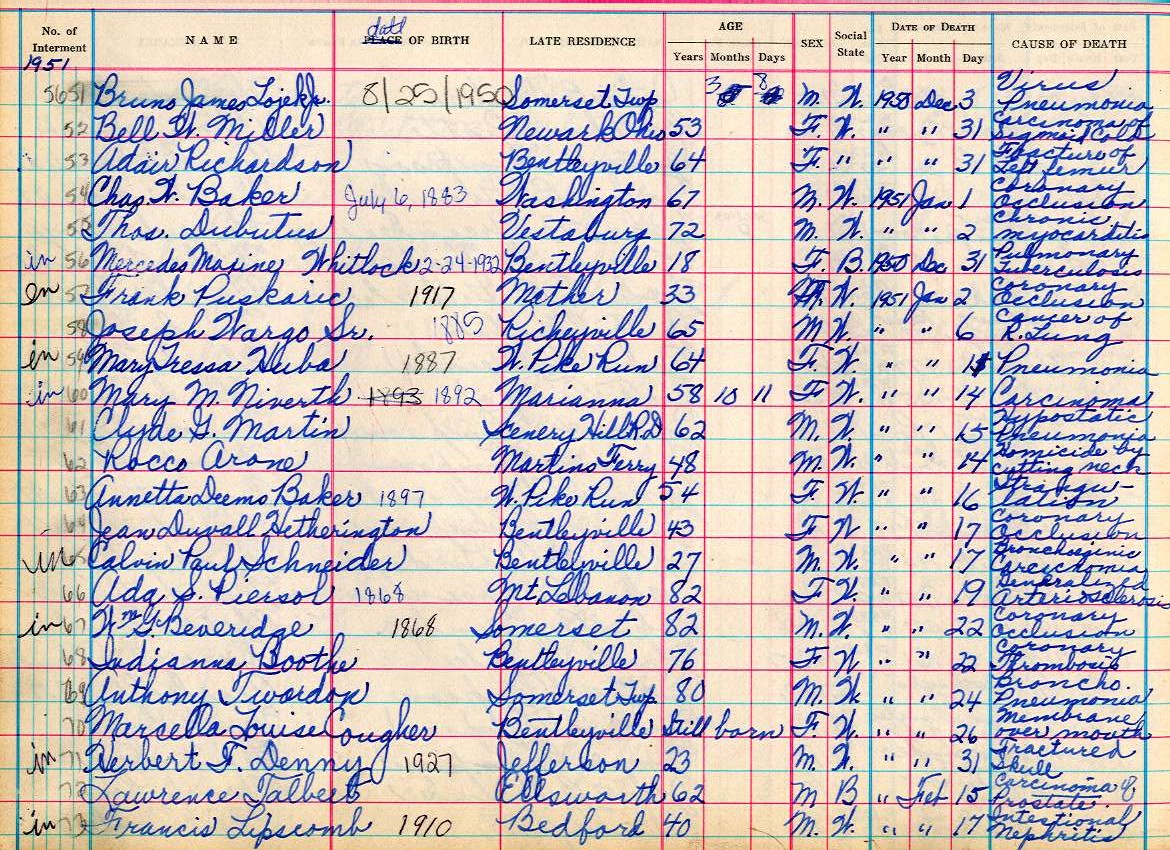 No. of Interment NAME date PLACE OF BIRTH LATE RESIDENCE AGE Years Months Days SEX Social State DATE OF DEATH Year Month Day CAUSE OF DEATH
1951
5651 Bruno James Lojek Jr. 8/25/1950 Somerset Twp 3 8 M. W. 1950 Dec 3 Virus Pneumonia
52 Bell W. Miller Newark Ohio 53 F. W. " " 31 Carcinoma of Sigmoid Colon
53 Adair Richardson Bentleyville 64 F. " " " 31 Fracture of Left Femur
54 Chas. W. Baker July 6, 1883 Washington 67 M. W. 1951 Jan 1 Coronary Occlusion
55 Thos. Dubutus Vestaburg 72 M. W. " " 2 Chronic myocarditis
in 56 Mercedes Maxine Whitlock 2-24-1932 Bentleyville 18 F. B. 1950 Dec 31 Pulmonary Tuberculosis
in 57 Frank Puskaric 1917 Mather 33 M. W. 1951 Jan 2 Coronary Occlusion
58 Joseph Wargo Sr. 1885 Richeyville 65 M W. " " 6 Cancer of R. Lung
in 59 Mary Tressa Huba 1887 W. Pike Run 64 F. W. " " Pneumonia
in 60 Mary M. Niverth 1893 1892 Marianna 58 10 11 F W. " " 14 Carcinoma
61 Clyde G. Martin Scenery Hill R.D 62 M. W. " " 15 Hypostatic Pneumonia
62 Rocco Arone Martins Ferry 48 M. W. " " 14 Homicide by cutting neck
63 Annetta Deems Baker 1897 W. Pike Run 54 F W. " " 16 Strangu-lation
64 Jean Duvall Hetherington Bentleyville 43 F W " " 17 Coronary Occlusion
in 65 Calvin Paul Schneider Bentleyville 27 M. W. " " 17 Bronchogenic Carcinoma
66 Ada S. Piersol 1868 Mt. Lebanon 82 F W. " " 19 Generalized Arteriosclerosis
in 67 Wm. G. Beveridge 1868 Somerset 82 M. W. " " 22 Coronary Occlusion
68 Indianna Boothe Bentleyville 76 F W " " 22 Coronary Thrombosis
69 Anthony Twardon Somerset Twp. 80 M. W. " " 24 Broncho. Pneumonia
70 Marcella Louise Cougher Bentleyville Still born F. W. " " 26 Membrane over mouth
in 71 Herbert F. Denny 1927 Jefferson 23 M. W. " " 31 Fractured Skull
72 Lawrence Talbert Ellsworth 62 M B " Feb 15 Carcinoma of Prostate.
in 73 Francis Lipscomb 1910 Bedford 40 M. W. " " 17 Intestional Nephritis